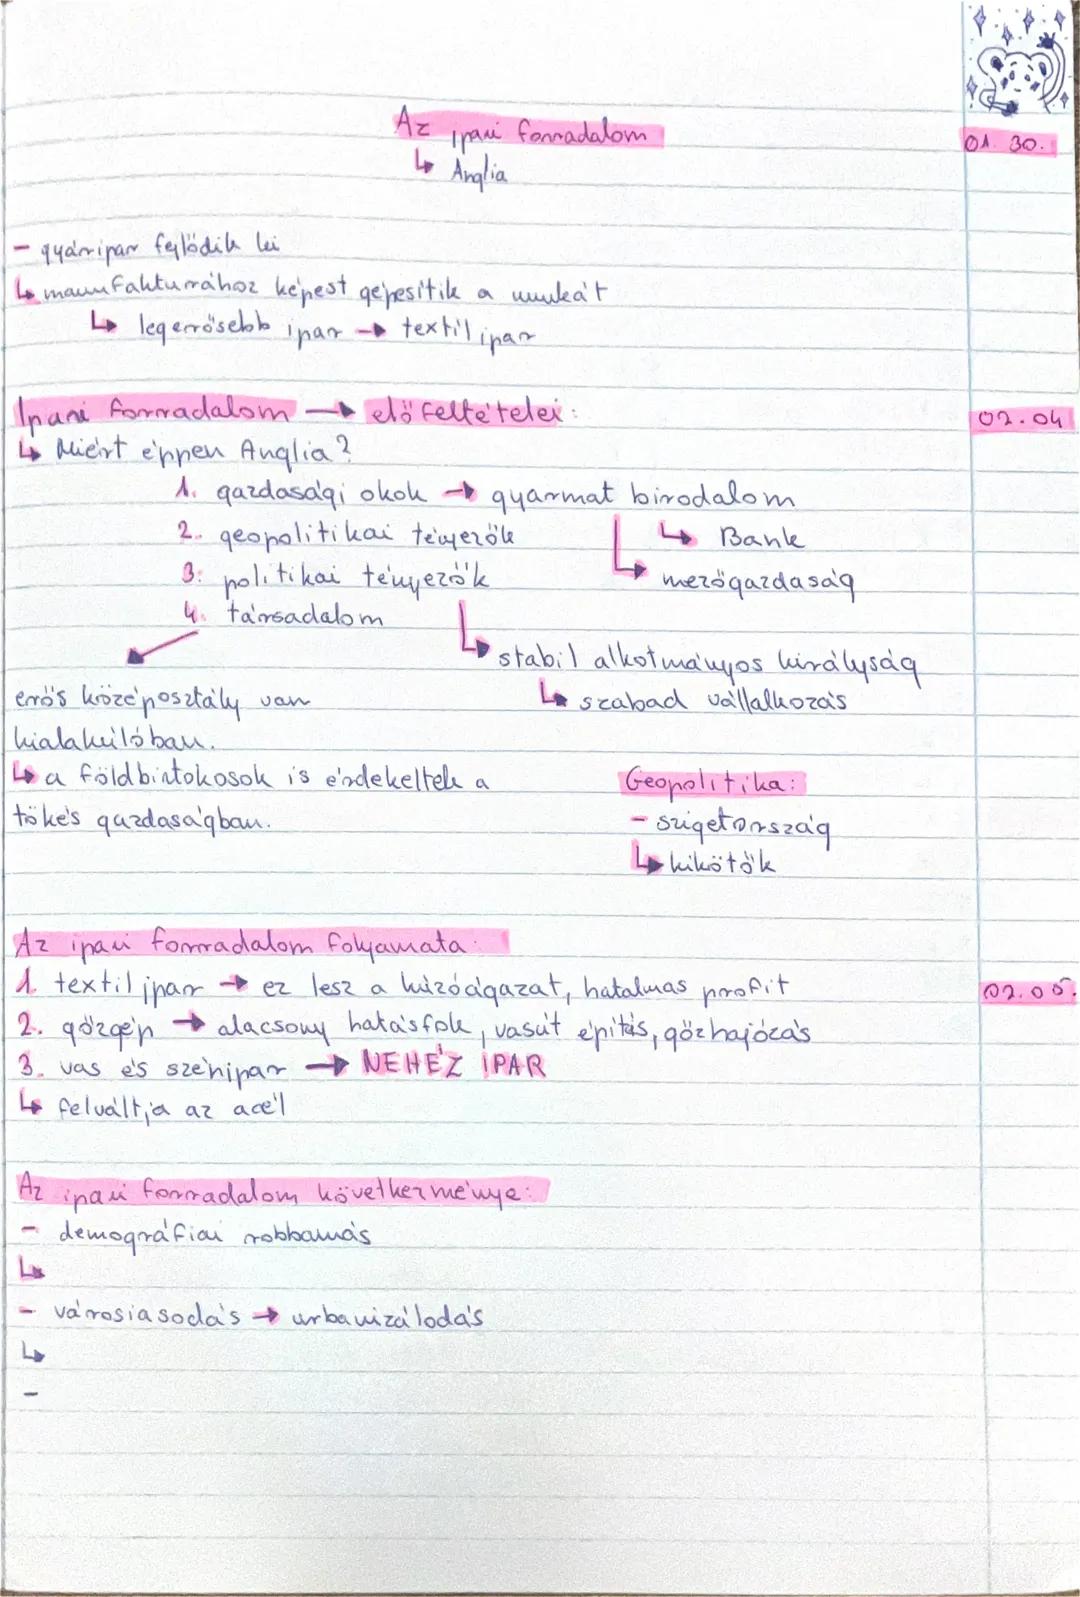 Az ipari forradalom
01. 30.
↳ Anglia
- gyáripar fejlődik ki
↳ manufaktúrához képest gépesítik a munkát
↳ legerősebb ipar → textil ipar
Ipari forradalom → előfeltételei:
02.04
↳ Miért éppen Anglia?
1. gazdasági okok → gyarmat birodalom
2. geopolitikai tényezők
↳ Bank
3. politikai tényezők
↳ mezőgazdaság
4. társadalom
↳ stabil alkotmányos királyság
erős középosztály van
↳ szabad vállalkozás
kialakulóban.
↳ a földbirtokosok is érdekeltek a
Geopolitika:
tőkés gazdaságban.
- szigetország
↳ kikötők
Az ipari forradalom folyamata:
1. textil ipar → ez lesz a húzóágazat, hatalmas profit
02.05.
2. gőzgép → alacsony hatásfok, vasút építés, gőzhajózás
3. vas és szénipar → NEHÉZ IPAR
↳ felváltja az acél
Az ipari forradalom következménye:
- demográfiai robbanás
↳
- városiasodás → urbanizálódás
↳
-